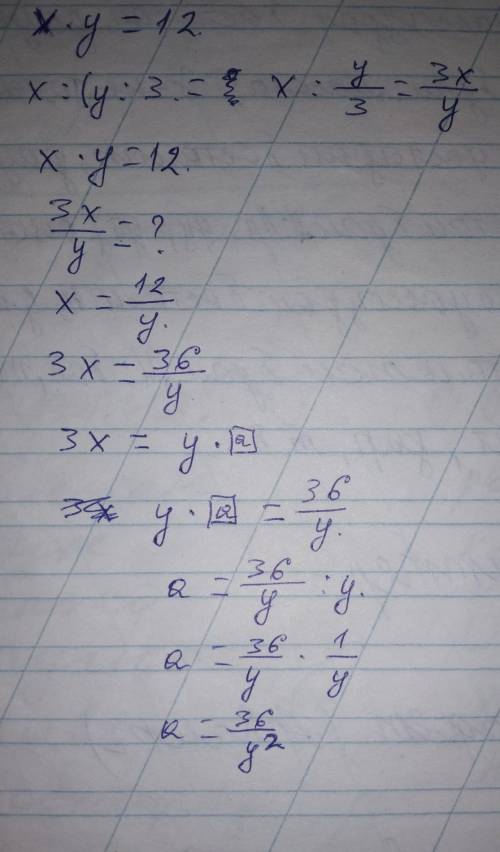 x · y = 12.
x : (y : 3. = x : y/3 = 3x/y
x · y = 12.
3x/y = ?
x = 12/y.
3x = 36/y
3x = y · a
3x y · a = 36/y.
a = 36/y : y.
a = 36/y · 1/y
a = 36/y²